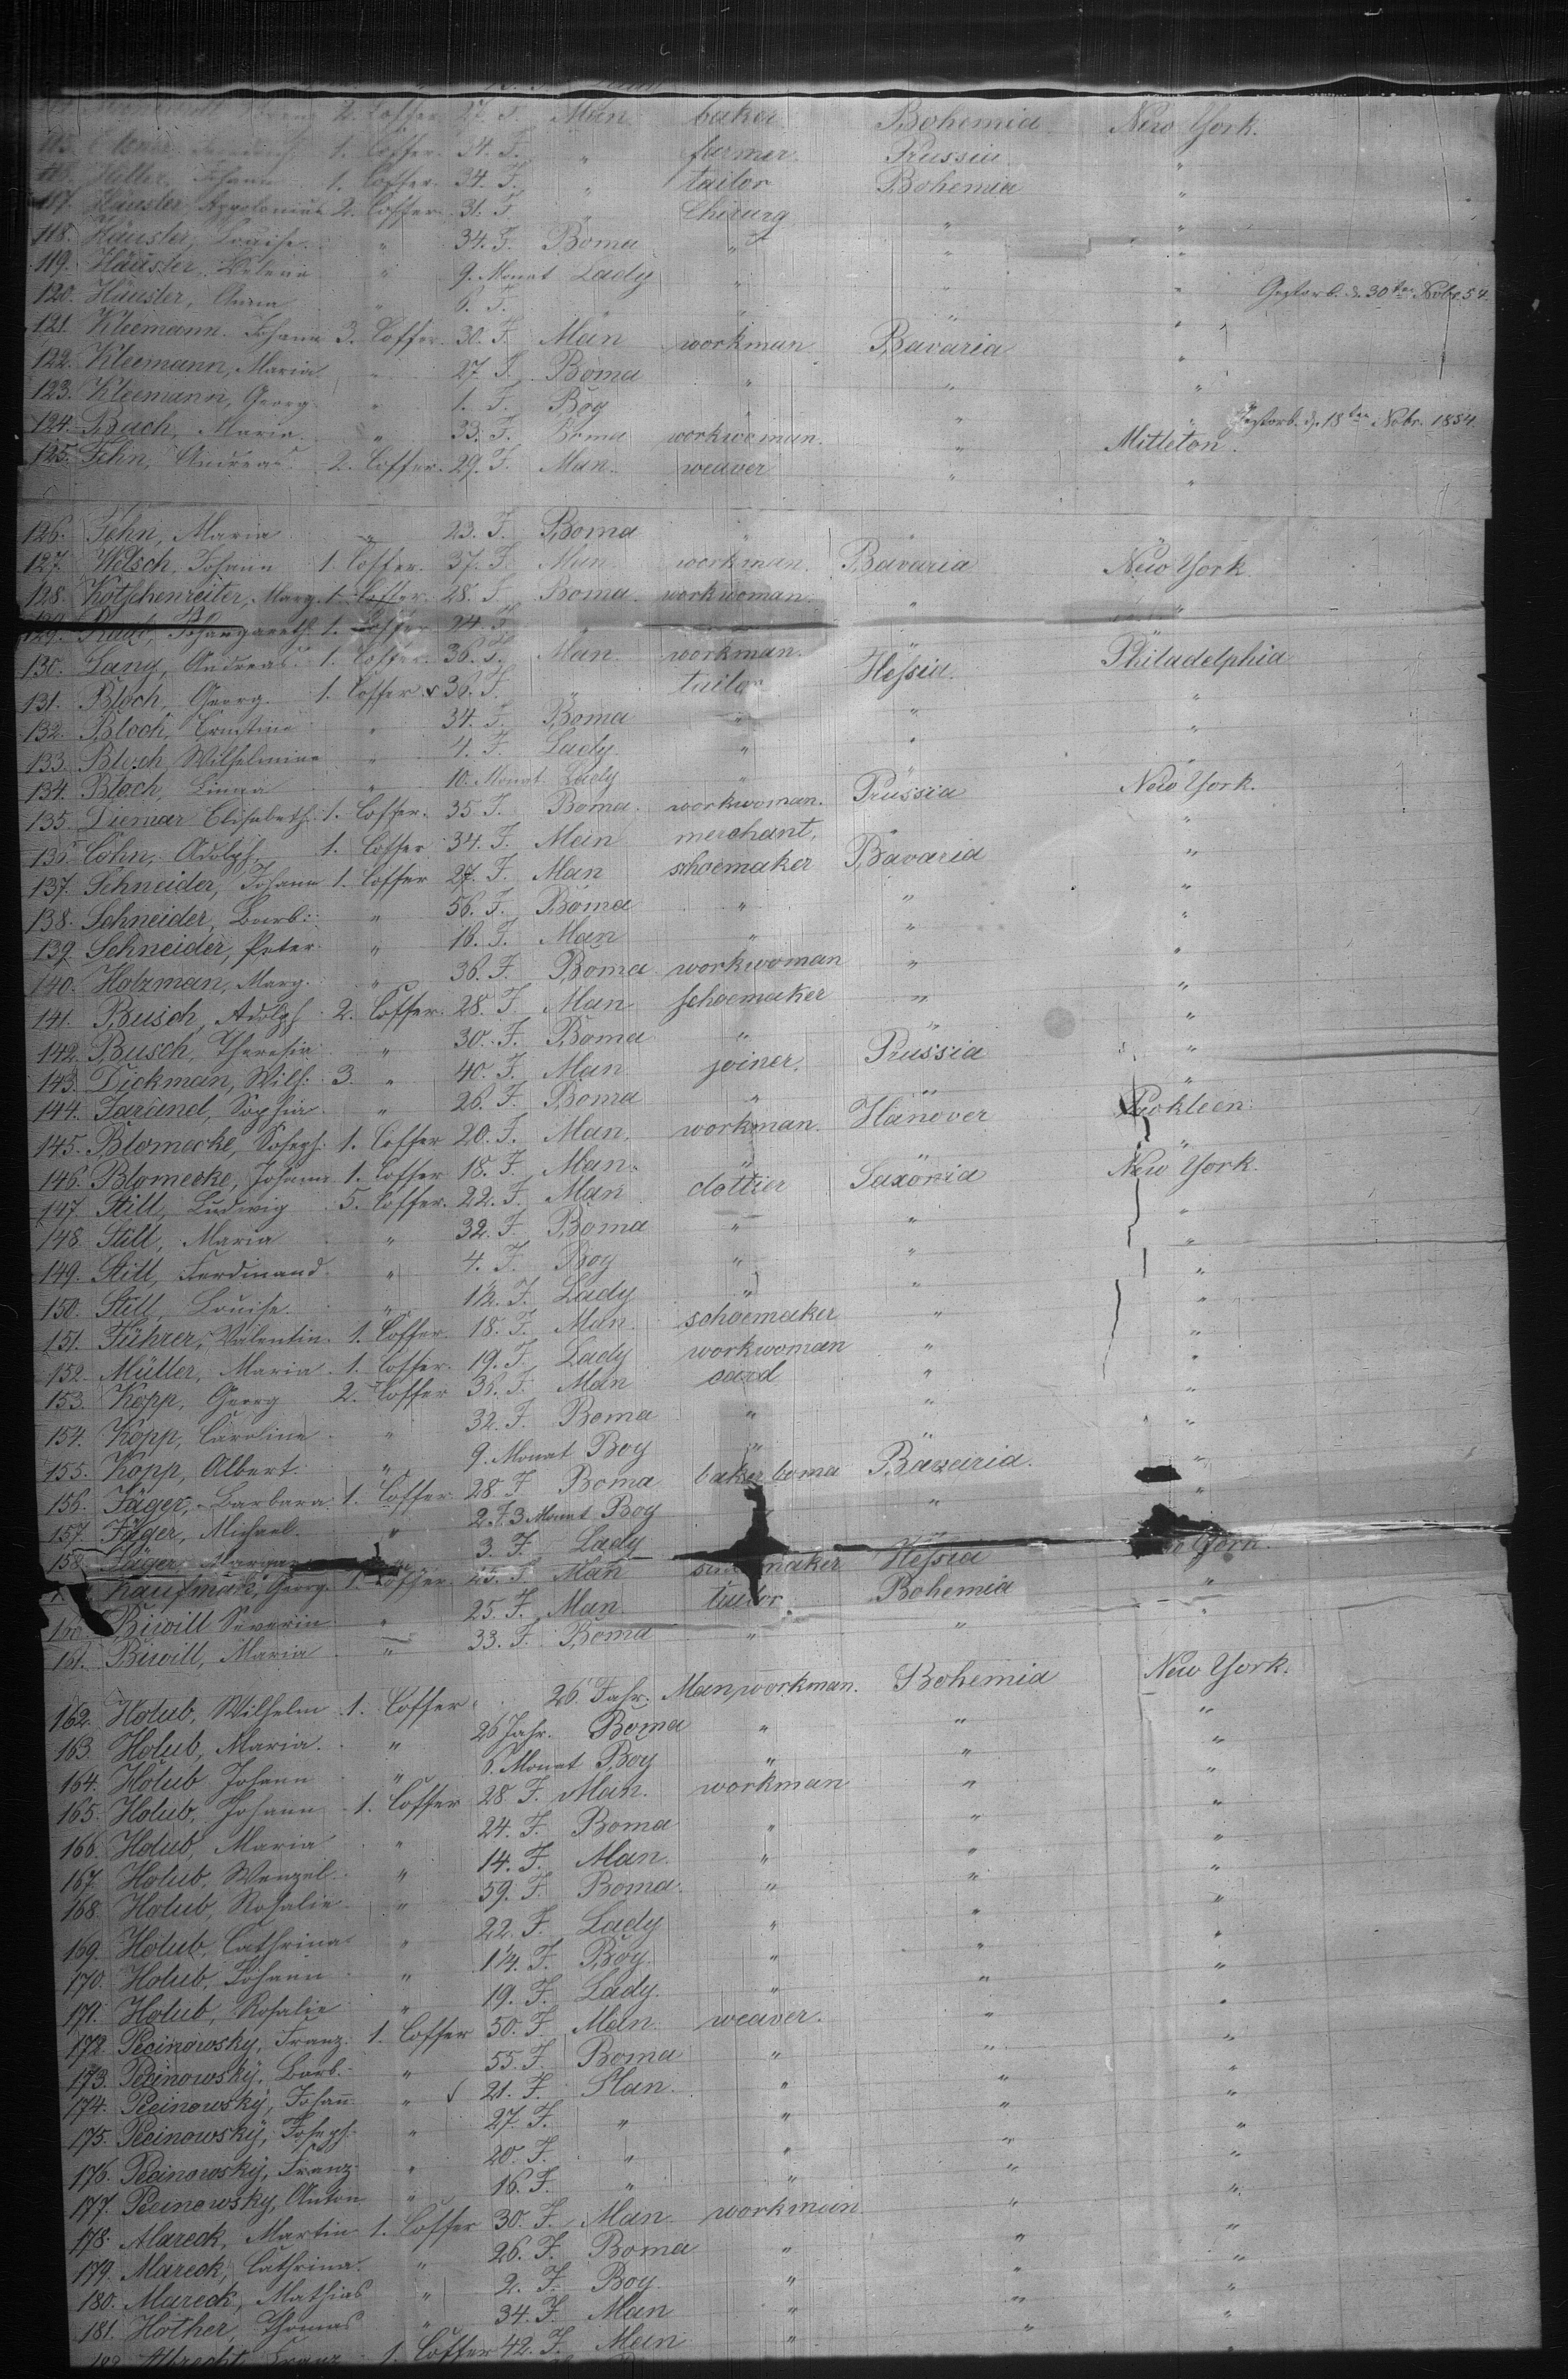 2. Coffer 27. J. Man baker Bohemia New York.
1. Coffer. 24. J. " farmer. Prussia "
Heller, Johann 1. Coffer. 34. J. " tailor Bohemia "
117. Häusler, 2. Coffer. 31. J. " Chirurg " "
118. Häusler, Louise. " 34. J. Boma " " "
119. Häusler, Helena " 9. Monat Lady " " " Gestorb. d. 30ten Nobr. 54.
120. Häusler, Anna " 6. J. " " " "
121. Kleemann. Johann 3. Coffer. 30. J. Man workman Bavaria "
122. Kleemann, Maria " 27. J. Boma " " "
123. Kleemann, Georg " 1. J. Boy " " " Gestorb. d. 18ten Nobr. 1854
124. Bach, Maria. " 33. J. Boma workwoman. " Mittleton.
125. Fehn, Andreas. 2. Coffer. 29. J. Man. weaver " "
126. Fehn, Maria " 23. J. Boma " "
127. Welsch, Johann 1. Coffer. 37. J. Man workman. Bavaria New York
128. Kotschenreiter, Marg. 1. Coffer. 28. J. Boma workwoman. " "
129. 1. Coffer 24. J. "
130. Lang, Andreas. 1. Coffer. 36. J. Man. workman. " Philadelphia
131. Bloch, Georg. 1. Coffer. 36. J. " tailor Hessia. "
132. Bloch, Ernstine " 34. J. Boma " " "
133. Bloch Wilhelmine " 4. J. Lady. " " "
134. Bloch, " 10. Monat Lady " "
135. Diemar Elisabeth. 1. Coffer. 35. J. Boma. workwoman. Prussia New York.
136. Cohn, Adolph, 1. Coffer 34. J. Man merchant. " "
137. Schneider, Johann 1. Coffer 27. J. Man shoemaker Bavaria "
138. Schneider, Barb: " 56. J. Boma " " "
139. Schneider, Peter " 18. J. Man " " "
140. Holzman, Marg. " 36. J. Boma workwoman " "
141. Busch, Adolph 2. Coffer. 28. J. Man schoemaker " "
142. Busch, Theresia " 30. J. Boma " " "
143. Dickman, Wilh: 3. " 40. J. Man joiner. Prussia "
144. Jarand, Sophia " 26. J. Boma " " "
145. Blomecke, Joseph. 1. Coffer 20. J. Man. workman. Hanover
146. Blomecke, Johann 1. Coffer 18. J. Man. " " "
147. Still, Ludwig 5. Coffer. 22. J. Man clottier Saxonia New York.
148. Still, Maria " 32. J. Boma " " "
149. Still, Ferdinand. " 4. J. Boy " " "
150. Still, Louise. " 1½. J. Lady " " "
151. Führer, Valentin. 1. Coffer. 18. J. Man. schoemaker " "
152. Müller, Maria 1. Coffer. 19. J. Lady workwoman " "
153. Kopp, Georg 2. Coffer 36. J. Man card " "
154. Kopp, Caroline " 32. J. Boma " " "
155. Kopp, Albert. " 9. Monat Boy " " "
156. Jäger, Barbara. 1. Coffer 28 J Boma baker boma Bavaria. "
157. Jäger, Michael. " 2. J. 3 Monat Boy " "
158. Jäger 3. J. Lady
Kaufman, Georg. 1. Coffer. 45. J. Man Hessia York.
160. Biwill Severin " 25. J. Man. tailor. Bohemia "
161. Biwill, Maria " 33. J. Boma " " "
162. Holub, Wilhelm 1. Coffer. 26. Jahr. Man, workman. Bohemia New York.
163. Holub, Maria. " 26 Jahr. Boma " " "
164. Holub Johann " 6. Monat Boy " " "
165. Holub, Johann 1. Coffer 28. J. Man. workman " "
166. Holub, Maria " 24. J. Boma " " "
167. Holub, Wenzel. " 14. J. Man. " " "
168. Holub, Rosalie " 59. J. Boma. " " "
169. Holub, Cathrina " 22. J. Lady " " "
170. Holub, Johann " 1¼. J. Boy. " " "
171. Holub, Rosalie " 19. J. Lady. " " "
172. Pecinowsky, Franz. 1. Coffer 50. J. Man. weaver. " "
173. Pecinowsky, Barb. " 55. J. Boma " " "
174. Pecinowsky, Johann " 21. J. Man. " " "
175. Pecinowsky, Joseph. " 27. J. " " " "
176. Pecinowsky, Franz " 20. J. " " " "
177. Pecinowsky, Anton " 16. J. " " " "
178. Mareck, Martin 1. Coffer 30. J. Man workman " "
179. Mareck, Cathrina. " 26. J. Boma " " "
180. Mareck, Mathias " 2. J. Boy. " " "
181. Hother, Thomas " 34. J. Man " " "
182. Albrecht, Franz 1. Coffer 42. J. Man " "